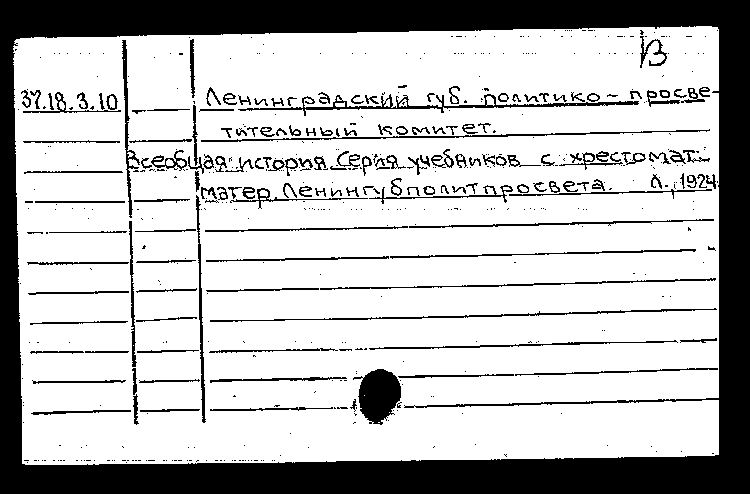 В
37.18.3.10 Ленинградский губ. политико-просве-
тительный комитет.
Всеобщая история. Серия учебников с хрестомат.
матер. Ленингубполитпросвета. Л., 1924.